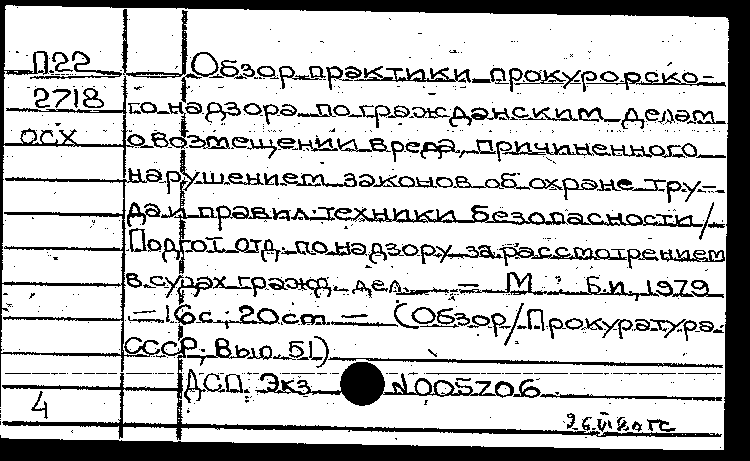 П22 Обзор практики прокурорско-
2718 го надзора по гражданским делам
осх о возмещении вреда, причиненного
нарушением законов об охране тру-
да и правил техники безопасности /
Подгот. отд. по надзору за рассмотрением
в судах гражд. дел. — М.: Б.и., 1979
— 16 с.; 20 cm — (Обзор/Прокуратура
СССР; Вып. 51)
ДСП. Экз. N005706
4